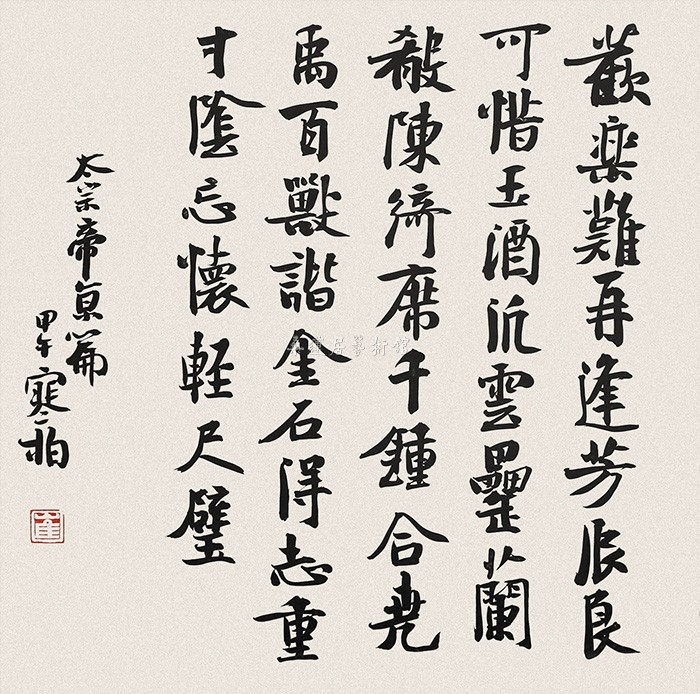 歡樂難再逢芳辰良
可惜玉酒泛雲罍蘭
殽陳綺席千鍾合堯
禹百獸諧金石得志重
寸陰忘懷輕尺璧
太宗帝京篇
甲午寒柏
崔
居藝術館